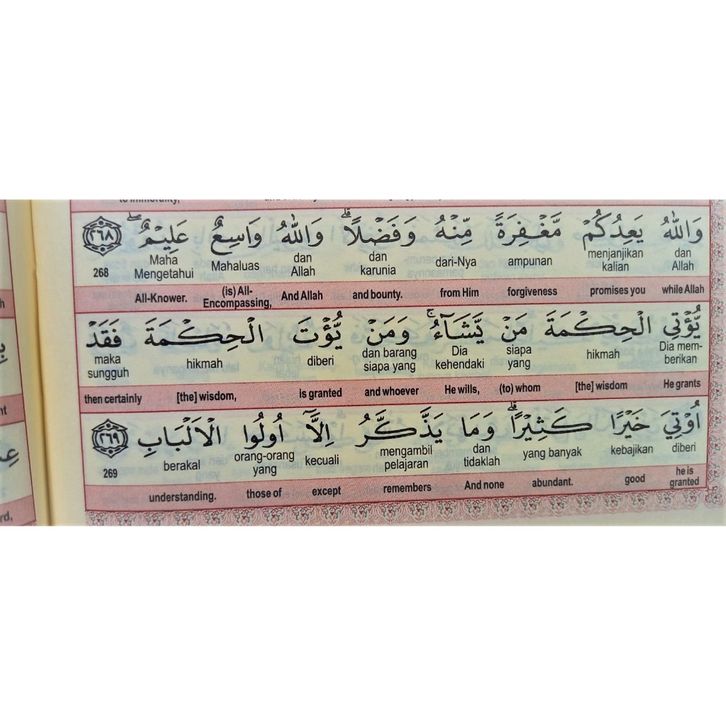 to immorality,
وَاللّٰهُ يَعِدُكُمْ مَّغْفِرَةً مِّنْهُ وَفَضْلًا ۗ وَاللّٰهُ وَاسِعٌ عَلِيْمٌ ۖ ٢٦٨
dan Allah menjanjikan kalian ampunan dari-Nya dan karunia dan Allah Mahaluas Maha Mengetahui 268
while Allah promises you forgiveness from Him and bounty. And Allah (is) All-Encompassing, All-Knower.
يُّؤْتِى الْحِكْمَةَ مَنْ يَّشَاۤءُ ۚ وَمَنْ يُّؤْتَ الْحِكْمَةَ فَقَدْ
Dia mem-berikan hikmah siapa yang Dia kehendaki dan barang siapa yang diberi hikmah maka sungguh
He grants [the] wisdom (to) whom He wills, and whoever is granted [the] wisdom, then certainly
اُوْتِيَ خَيْرًا كَثِيْرًا ۗ وَمَا يَذَّكَّرُ اِلَّآ اُولُوا الْاَلْبَابِ ٢٦٩
diberi kebajikan yang banyak dan tidaklah mengambil pelajaran kecuali orang-orang yang berakal 269
he is granted good abundant. And none remembers except those of understanding.